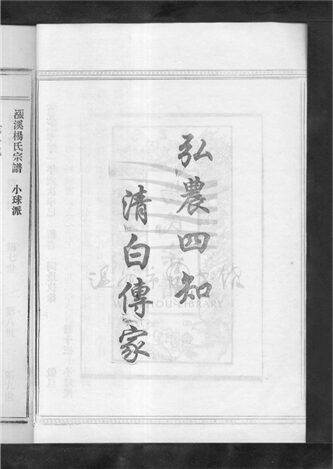 弘農四知
清白傳家
楊氏宗譜 小球派
LIBRARY